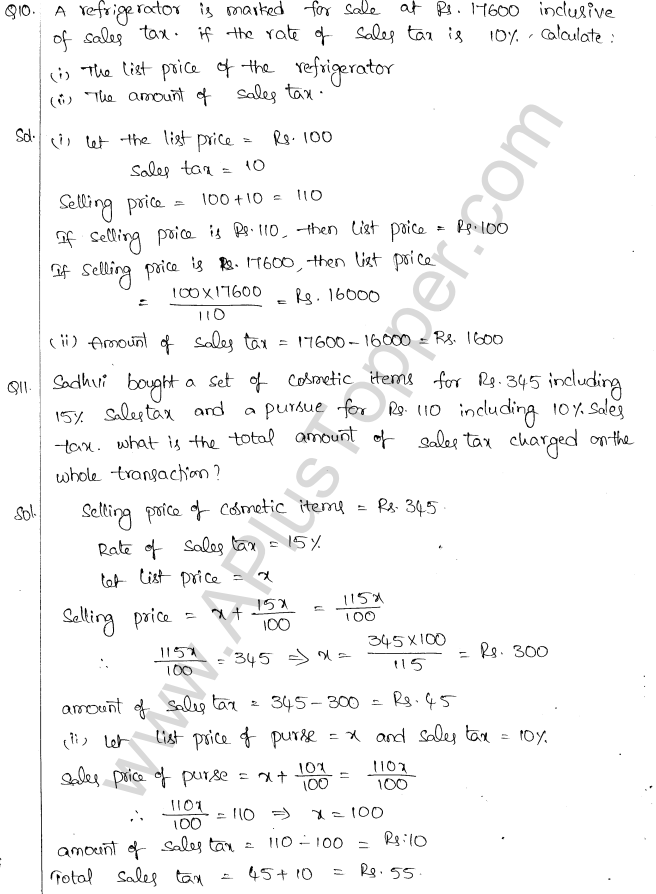 Q10. A refrigerator is marked for sale at Rs. 17600 inclusive
of sales tax. if the rate of sales tax is 10%, calculate:
(i) The list price of the refrigerator
(ii) The amount of sales tax.
Sol. (i) let the list price = Rs. 100
Sales tax = 10
Selling price = 100+10 = 110
If selling price is Rs.110, then list price = Rs.100
If selling price is Rs. 17600, then list price
= 100×17600/110 = Rs. 16000
(ii) Amount of sales tax = 17600-16000 = Rs. 1600
Q11. Sadhvi bought a set of cosmetic items for Rs.345 including
15% sales tax and a pursue for Rs. 110 including 10% sales
tax. what is the total amount of sales tax charged on the
whole transaction?
Sol. Selling price of cosmetic items = Rs. 345
Rate of sales tax = 15%
let list price = x
Selling price = x + 15x/100 = 115x/100
∴ 115x/100 = 345 ⇒ x = 345×100/115 = Rs. 300
amount of sales tax = 345-300 = Rs. 45
(ii) let list price of purse = x and sales tax = 10%
Sales price of purse = x + 10x/100 = 110x/100
∴ 110x/100 = 110 ⇒ x = 100
amount of sales tax = 110-100 = Rs.10
Total sales tax = 45+10 = Rs. 55.
www.APlusTopper.com